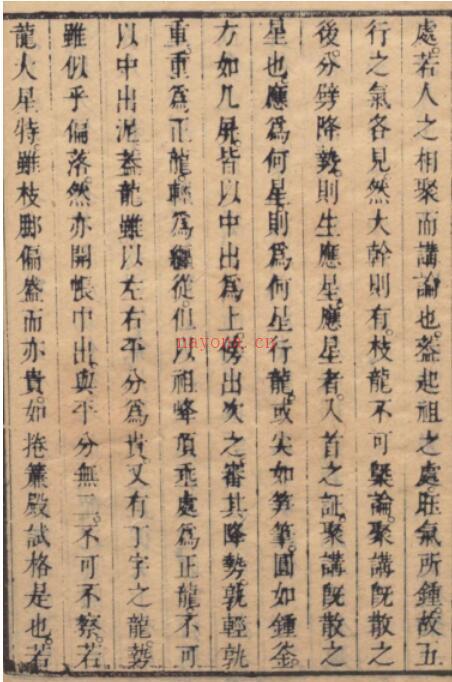 處。若人之相聚而講論也。葢起祖之處。旺氣所鍾。故五
行之氣各見。然大幹則有。枝龍不可槩論。聚講旣散之
後。分劈降勢。則生應星。應星者。入首之証。聚講旣散之
星也。應爲何星。則爲何星行龍。或尖如笋筆。圓如鍾釜。
方如几屏。皆以中出爲上。傍出次之。審其降勢。孰輕孰
重。重爲正龍。輕爲纒從。但以祖峰頂處爲正龍。不可
以中出泥。葢龍雖以左右平分爲貴。又有丁字之龍。勢
雖似乎偏落。然亦開帳中出。與平分無二。不可不察。若
龍大星特。雖枝脚偏盛而亦貴。如捲簾殿試格是也。若
nayong.cn